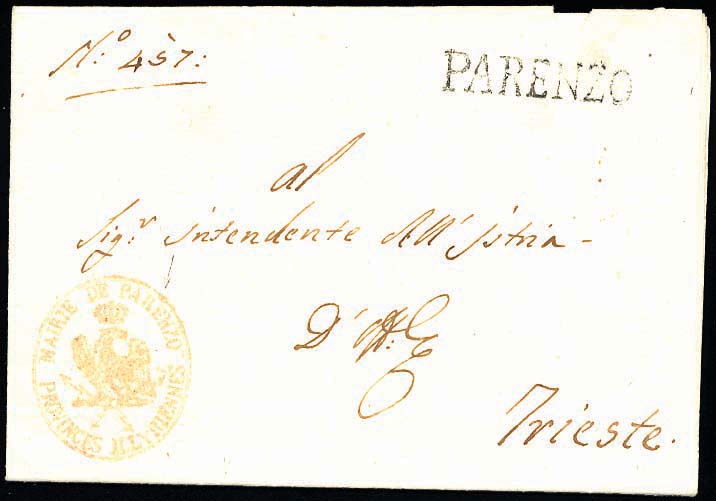 Nº 457:
PARENZO
al
Sigr. Intendente All' Istria -
D'
Trieste.
MAIRIE DE PARENZO
PROVINCES ILLYRIENNES